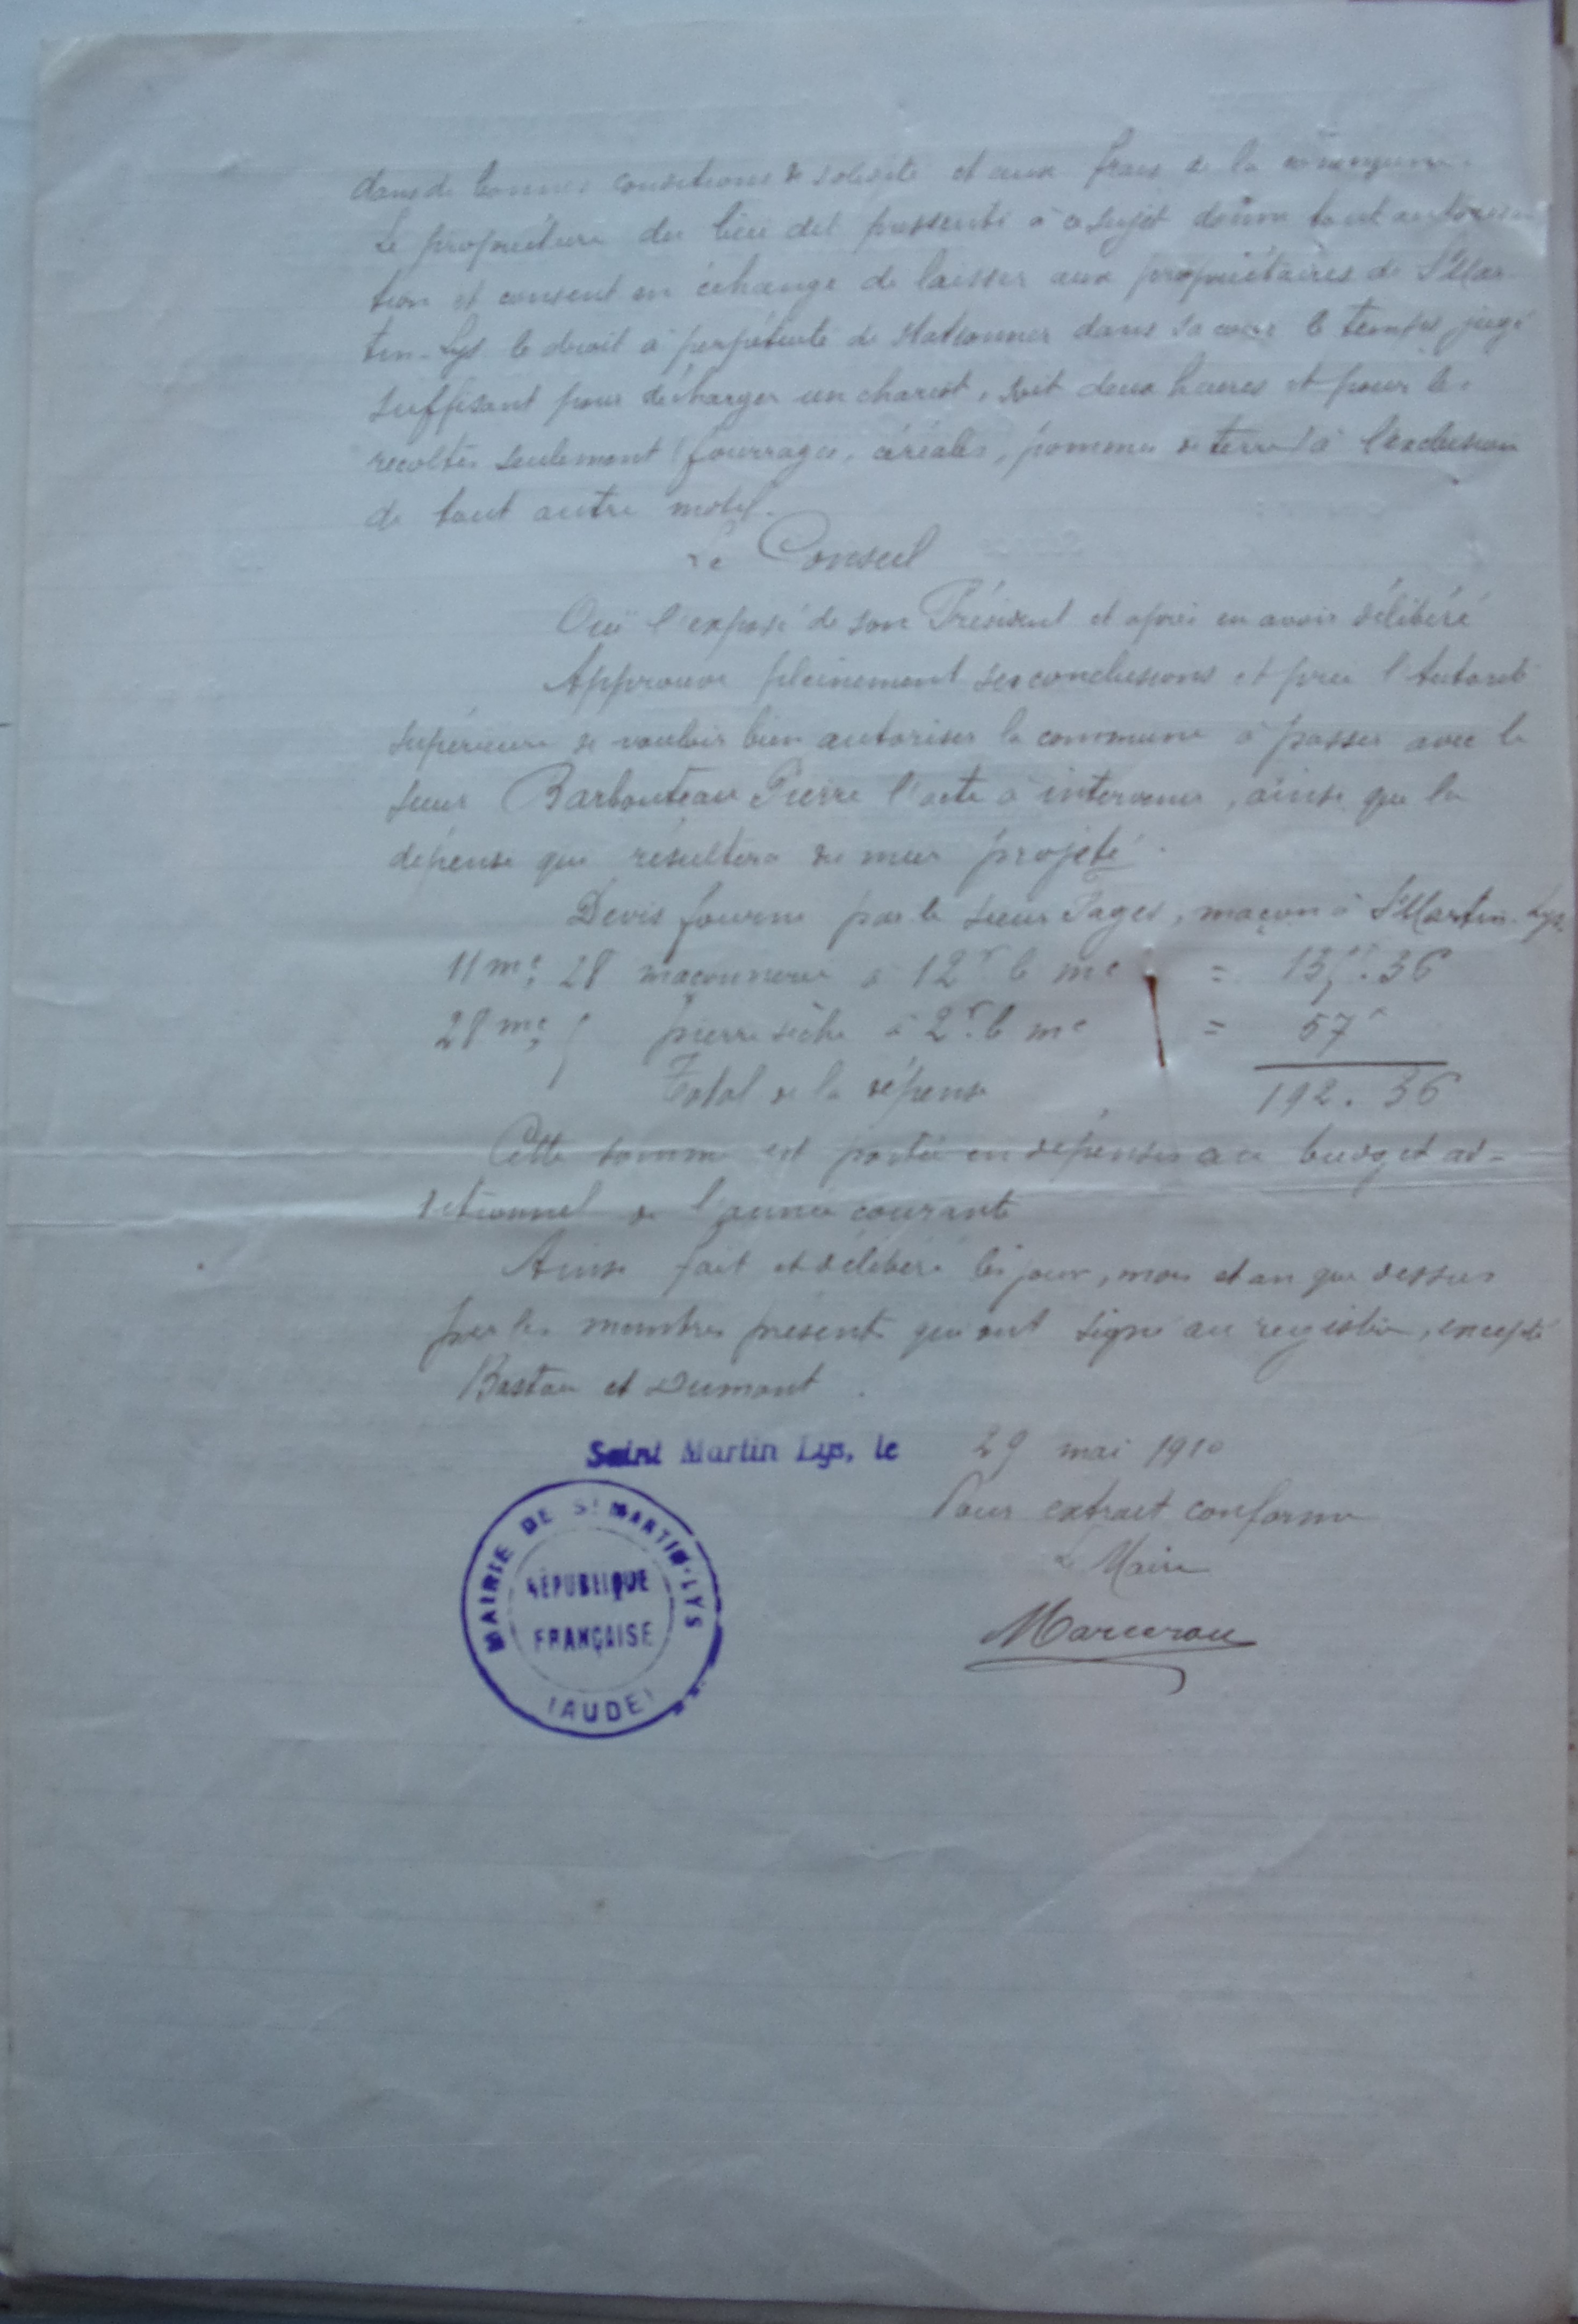 dans de bonnes conditions de solidité et aux frais de la commune.
Le propriétaire du lieu dit pressenti à ce sujet donne tout autorisa
tion et consent en échange de laisser aux propriétaires de St Mar-
tin-Lys le droit à perpétuité de stationner dans sa cour le temps jugé
suffisant pour décharger un chariot, soit deux heures et pour les
récoltes seulement (fourrages, céréales, pommes de terre) à l'exclusion
de tout autre motif.
Le Conseil
Ouï l'exposé de son Président et après en avoir délibéré
Approuve pleinement ses conclusions et prie l'Autorité
supérieure de vouloir bien autoriser la commune à passer avec le
sieur Barbouteau Pierre l'acte à intervenir, ainsi que la
dépense que résultera du mur projeté.
Devis fourni par le sieur Pages, maçon à St Martin-Lys.
11 mc, 28 maçonnerie à 12 f le mc = 135 f. 36
28 mc, 5 pierre sèche à 2 f. le mc = 57 f
Total de la dépense 192. 36
Cette somme est portée en dépenses au budget ad-
ditionnel de l'année courante
Ainsi fait et délibéré les jour, mois et an que dessus
par les membres présents qui ont signé au registre, excepté
Bastou et Dumont.
Saint Martin Lys, le 29 mai 1910
Pour extrait conforme
Le Maire
MAIRIE DE St MARTIN-LYS
RÉPUBLIQUE
FRANÇAISE
(AUDE)